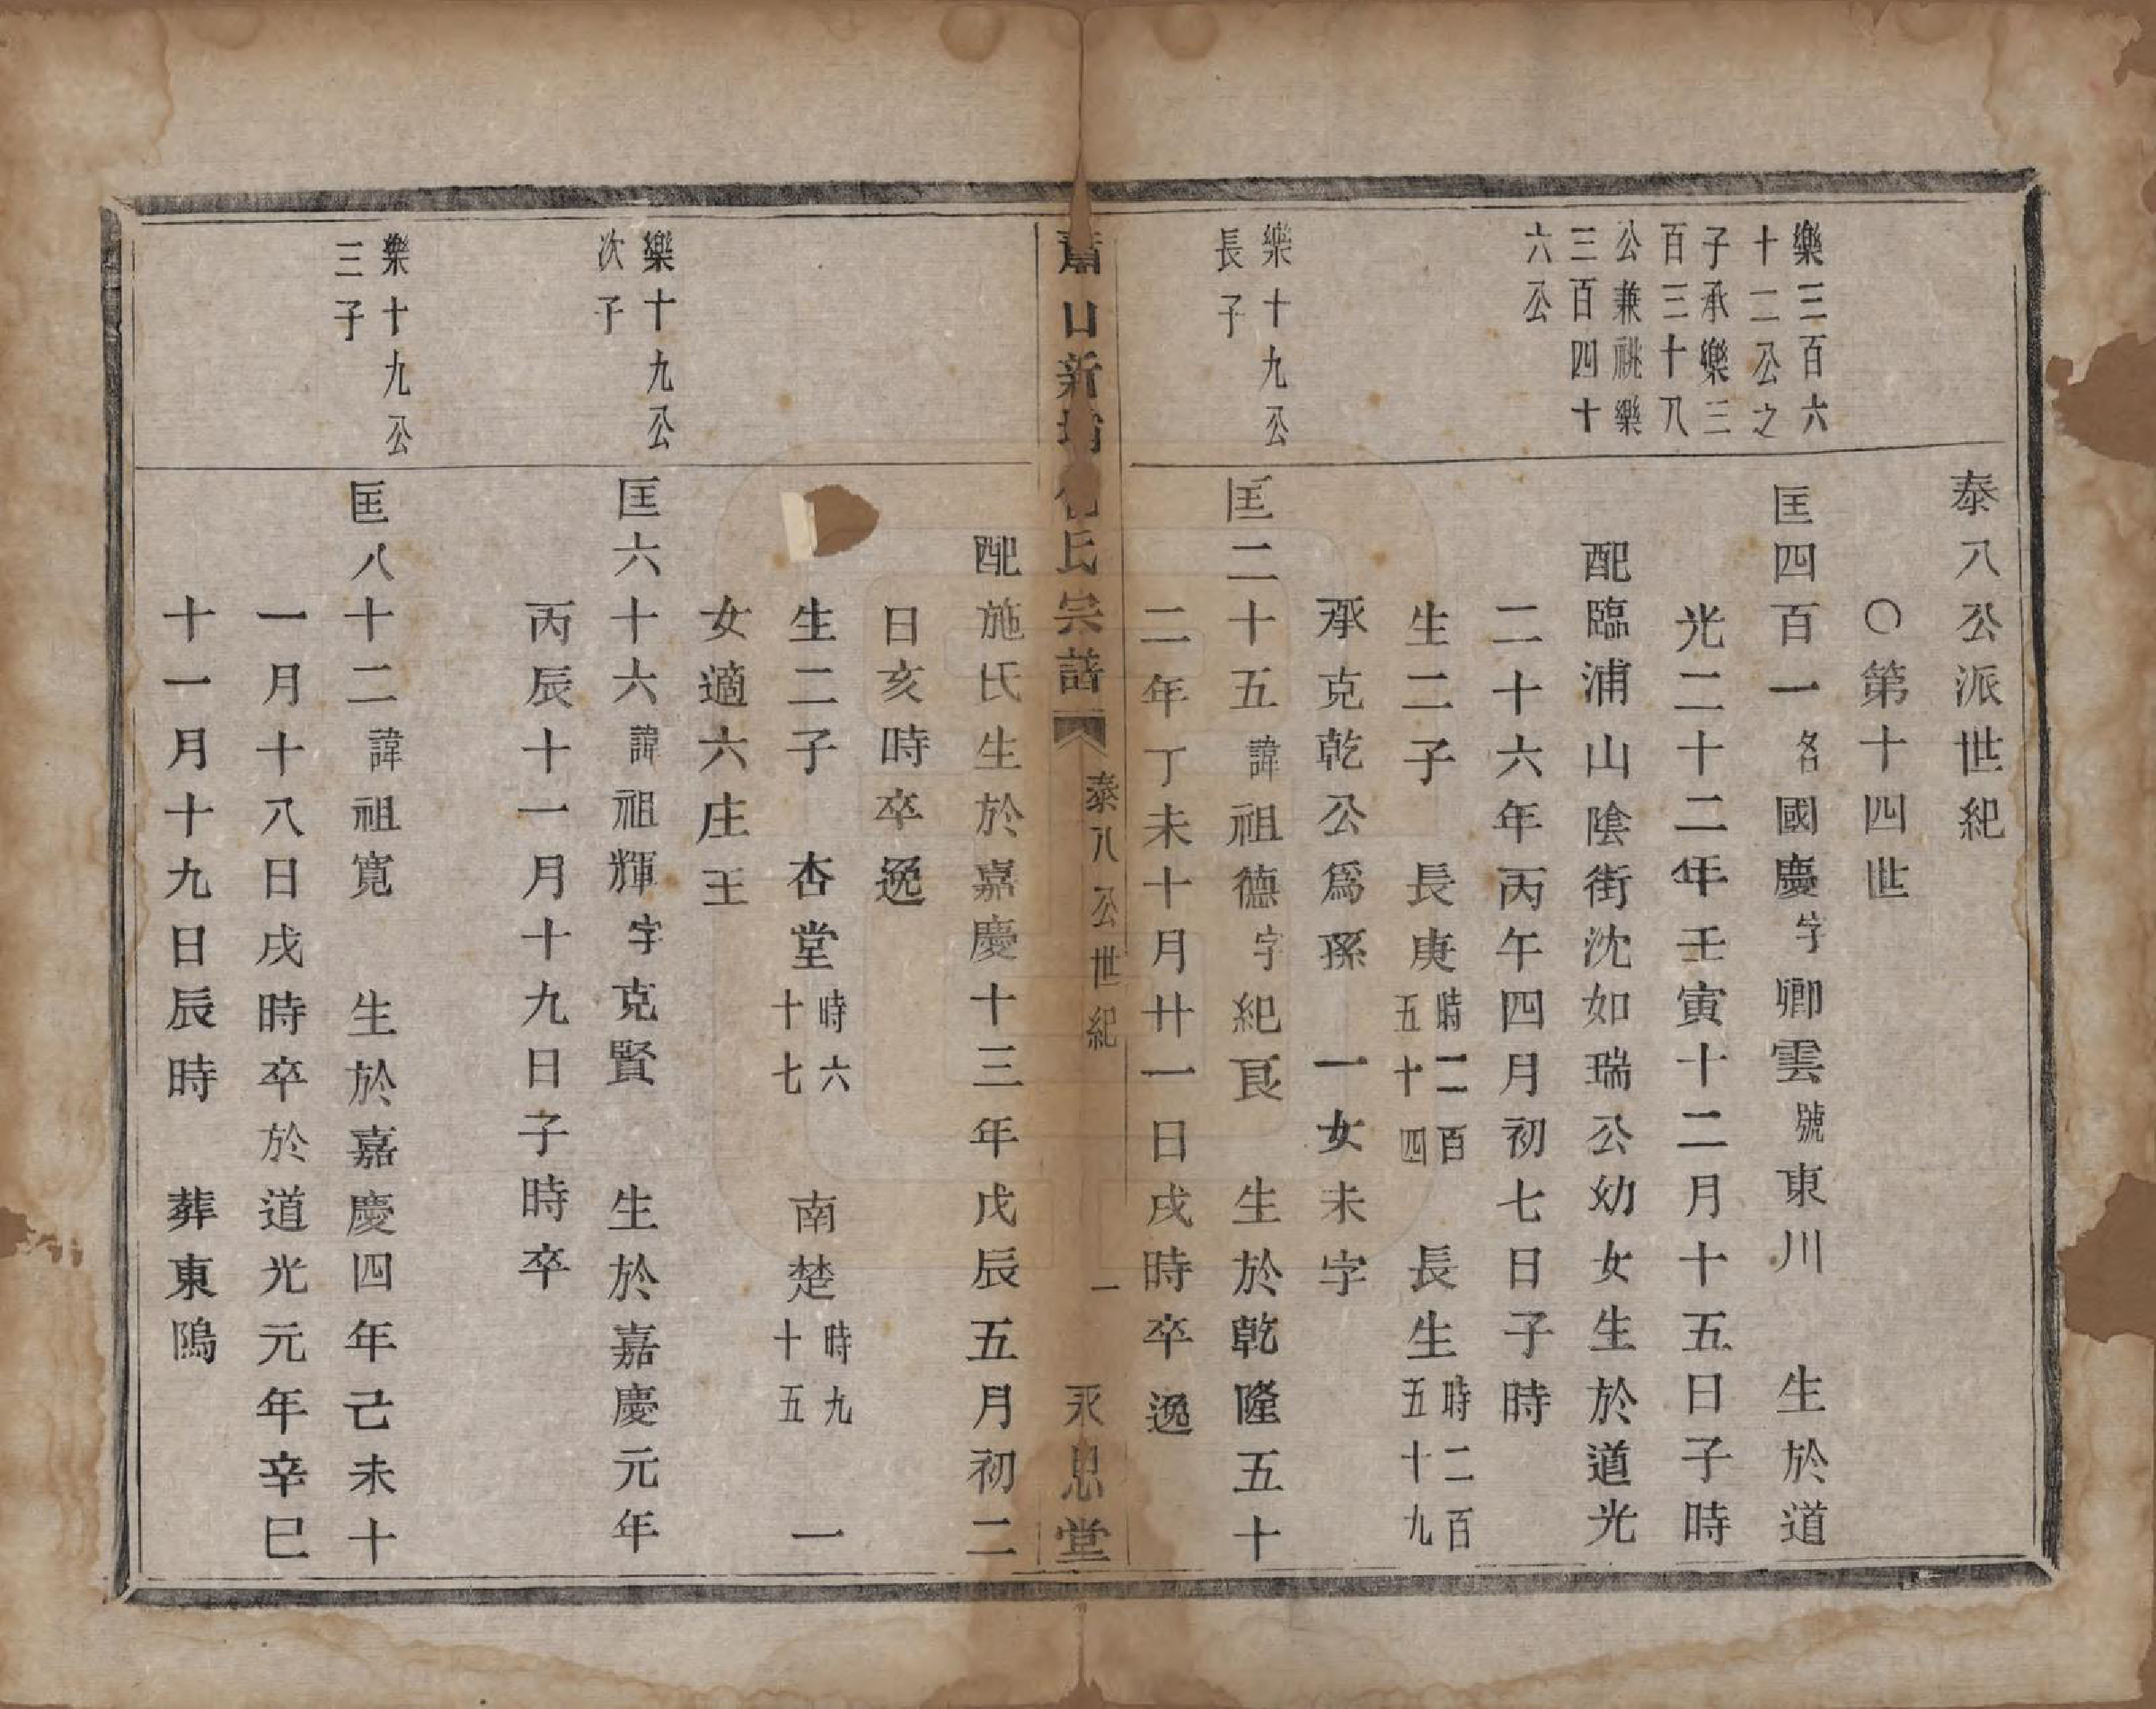 泰八公派世紀
〇第十四世
樂三百六
十二公之
子承樂三
百三十八
公兼祧樂
三百四十
六公
匡四百一名國慶字卿雲號東川 生於道
光二十二年壬寅十二月十五日子時
配臨浦山陰街沈如瑞公幼女生於道光
二十六年丙午四月初七日子時
生二子 長庚時二百五十四 長生時二百五十九
承克乾公爲孫 一女未字
樂十九公
長子
匡二十五諱祖德字紀良 生於乾隆五十
二年丁未十月廿一日戌時卒逸
蕭山新 氏宗譜 泰八公世紀 一 永思堂
配施氏生於嘉慶十三年戊辰五月初二
日亥時卒逸
生二子 杏堂時六十七 南楚時九十五 一
女適六庄王
樂十九公
次子
匡六十六諱祖輝字克賢 生於嘉慶元年
丙辰十一月十九日子時卒
樂十九公
三子
匡八十二諱祖寬 生於嘉慶四年己未十
一月十八日戌時卒於道光元年辛巳
十一月十九日辰時 葬東隝